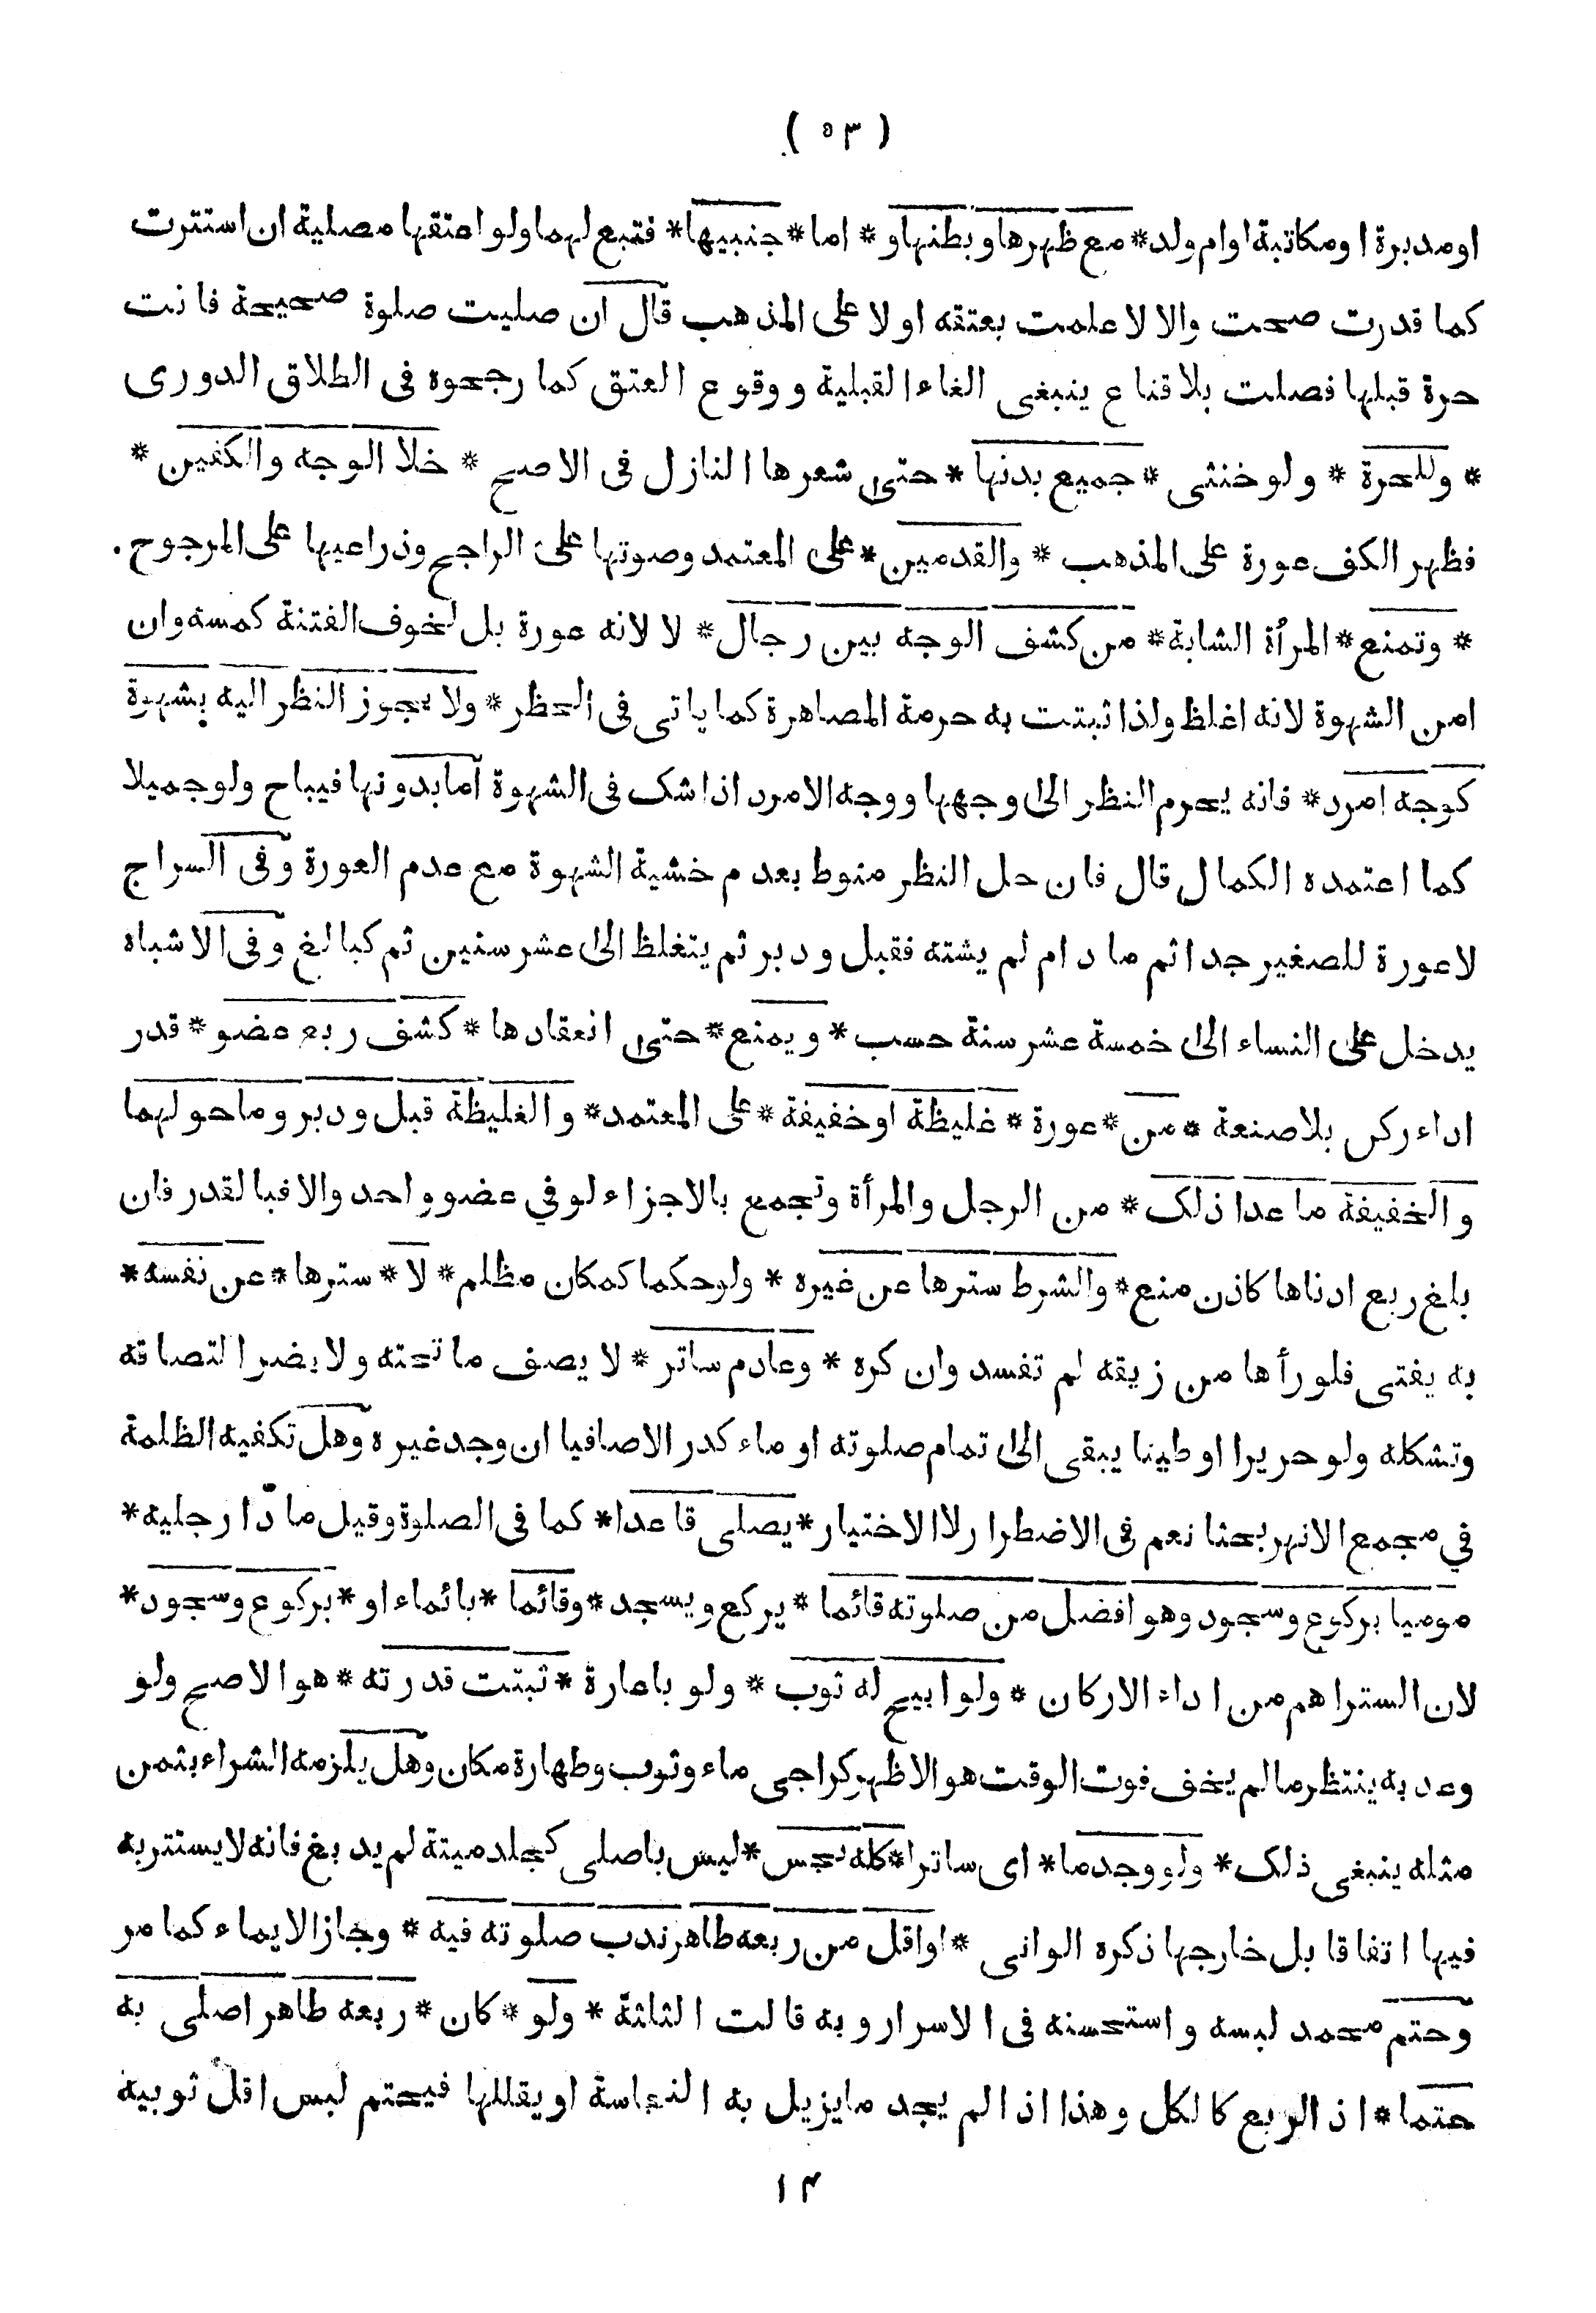 ( ٥٣ )
اومدبرة اومكاتبة اوام ولد * مع ظهرها وبطنها و * اما * جنبيها * فتبع لهما ولو اعتقها مصلية ان استترت
كما قدرت صحت والا لا علمت بعتقه او لا على المذهب قال ان صليت صلوة صحيحة فانت
حرة قبلها فصلت بلا قناع ينبغى الغاء القبلية ووقوع العتق كما رجحوه فى الطلاق الدورى
* وللحرة * ولو خنثى * جميع بدنها * حتى شعرها النازل فى الاصح * خلا الوجه والكفين *
فظهر الكف عورة على المذهب * والقدمين * على المعتمد وصوتها على الراجح وذراعيها على المرجوح .
* وتمنع * المرأة الشابة * من كشف الوجه بين رجال * لا لانه عورة بل لخوف الفتنة كمسه وان
امن الشهوة لانه اغلظ ولذا ثبتت به حرمة المصاهرة كما ياتى فى الحظر * ولا يجوز النظر اليه بشهوة
كوجه امرد * فانه يحرم النظر الى وجهها ووجه الامرد اذا شك فى الشهوة اما بدونها فيباح ولو جميلا
كما اعتمده الكمال قال فان حل النظر منوط بعدم خشية الشهوة مع عدم العورة وفى السراج
لا عورة للصغير جدا ثم ما دام لم يشته فقبل ودبر ثم يتغلظ الى عشر سنين ثم كبالغ وفى الاشباه
يدخل على النساء الى خمسة عشر سنة حسب * ويمنع * حتى انعقادها * كشف ربع عضو * قدر
اداء ركن بلا صنعة * من * عورة * غليظة اوخفيفة * على المعتمد * والغليظة قبل ودبر وما حولهما
والخفيفة ما عدا ذلك * من الرجل والمرأة وتجمع بالاجزاء لو في عضو واحد والا فبالقدر فان
بلغ ربع ادناها كاذن منع * والشرط سترها عن غيره * ولو حكما كمكان مظلم * لا * سترها * عن نفسه *
به يفتى فلو رأها من زيقه لم تفسد وان كره * وعادم ساتر * لا يصف ما تحته ولا يضر التصاقه
وتشكله ولو حريرا او طينا يبقى الى تمام صلوته او ماء كدر الا صافيا ان وجد غيره وهل تكفيه الظلمة
في مجمع الانهر بحثا نعم فى الاضطرار لا الاختيار * يصلى قاعدا * كما فى الصلوة وقيل مادّا رجليه *
موميا بركوع وسجود وهو افضل من صلوته قائما * يركع ويسجد * وقائما * بائماء او * بركوع وسجود *
لان الستر اهم من اداء الاركان * ولو ابيح له ثوب * ولو باعارة * ثبتت قدرته * هو الاصح ولو
وعد به ينتظر ما لم يخف فوت الوقت هو الاظهر كراجى ماء وثوب وطهارة مكان وهل يلزمه الشراء بثمن
مثله ينبغى ذلك * ولو وجد ما * اى ساترا * كله نجس * ليس باصلى كجلد ميتة لم يدبغ فانه لا يستتر به
فيها اتفاقا بل خارجها ذكره الوانى * او اقل من ربعه طاهر ندب صلوته فيه * وجاز الايماء كما مر
وحتم محمد لبسه واستحسنه فى الاسرار وبه قالت الثلثة * ولو * كان * ربعه طاهر اصلى به
حتما * اذ الربع كالكل وهذا اذا لم يجد ما يزيل به النجاسة او يقللها فيحتم لبس اقل ثوبيه
١٤